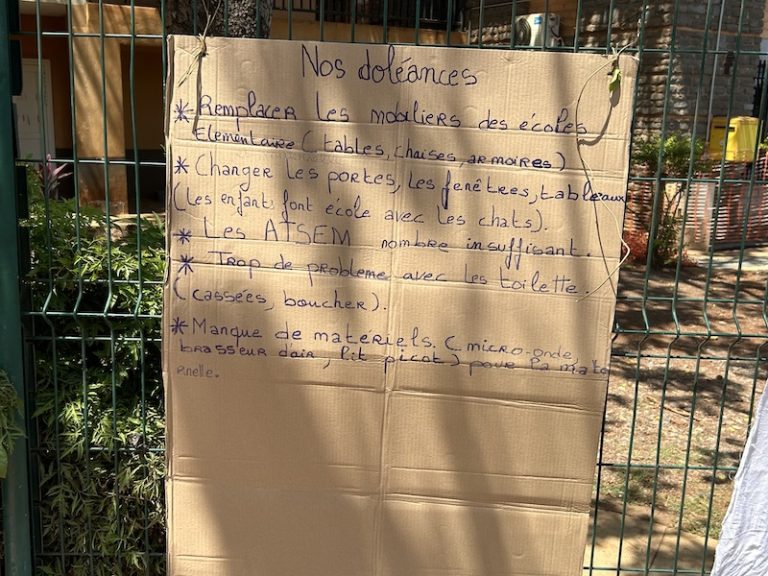 Nos doléances
* Remplacer les mobiliers des écoles
Elementaire (tables, chaises, armoires)
* Changer les portes, les fenêtres, tableaux
(Les enfants font école avec les chats).
* Les ATSEM nombre insuffisant.
* Trop de probleme avec les toilette.
(cassées, boucher).
* Manque de matériels. (micro-onde,
brasseur d'air, lit picot) pour la mate
rnelle.